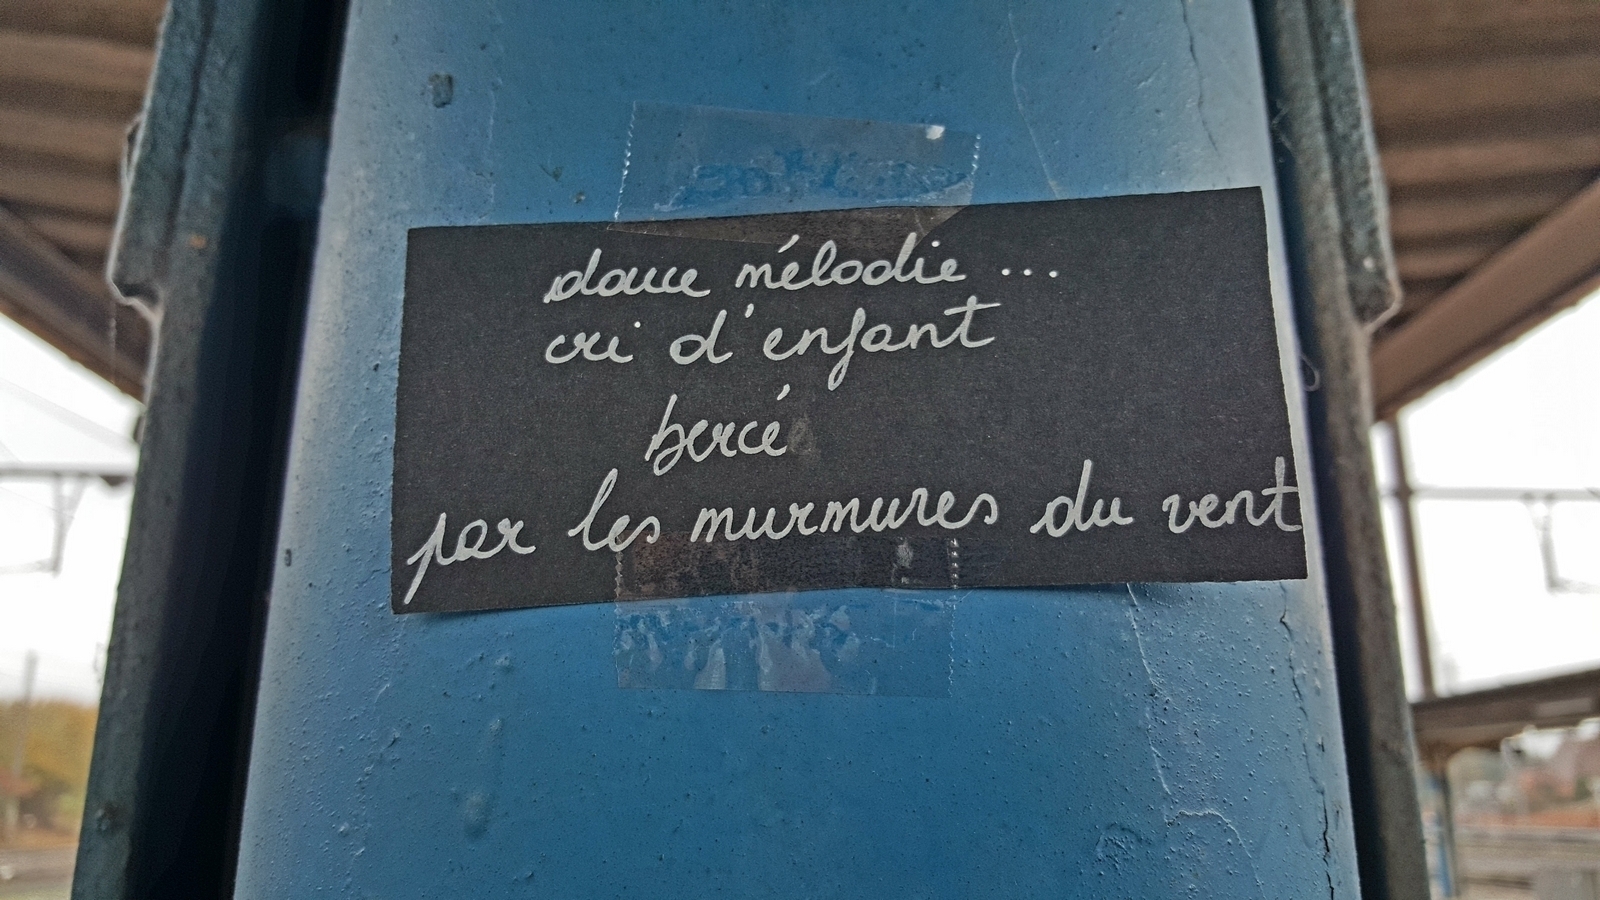 douce mélodie ...
cri d'enfant
bercé
par les murmures du vent